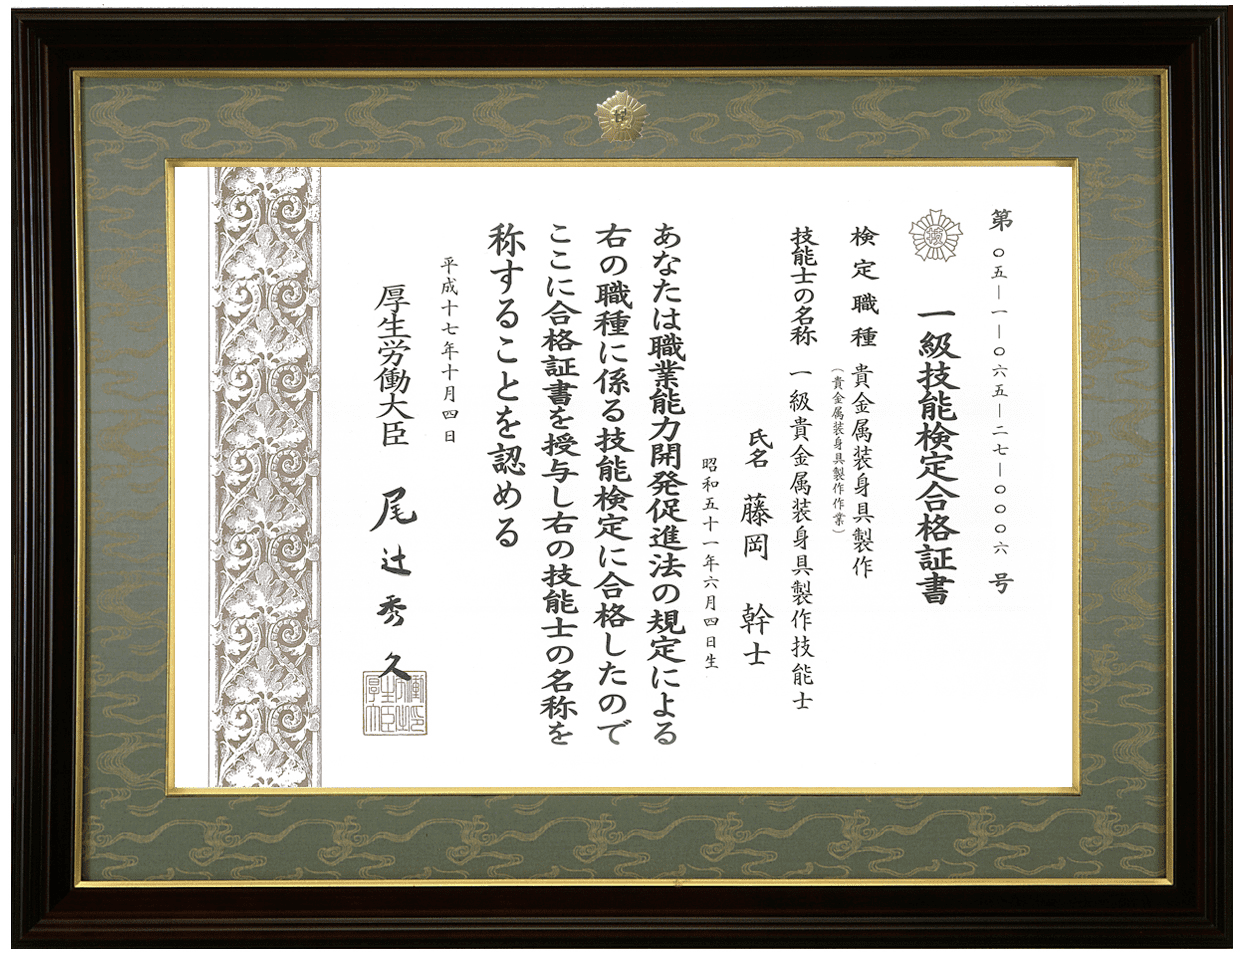 第〇五―一―〇六五―二七―〇〇〇六号
一級技能検定合格証書
検定職種 貴金属装身具製作
(貴金属装身具製作作業)
技能士の名称 一級貴金属装身具製作技能士
氏名 藤岡 幹士
昭和五十一年六月四日生
あなたは職業能力開発促進法の規定による
右の職種に係る技能検定に合格したので
ここに合格証書を授与し右の技能士の名称を
称することを認める
平成十七年十月四日
厚生労働大臣 尾辻秀久